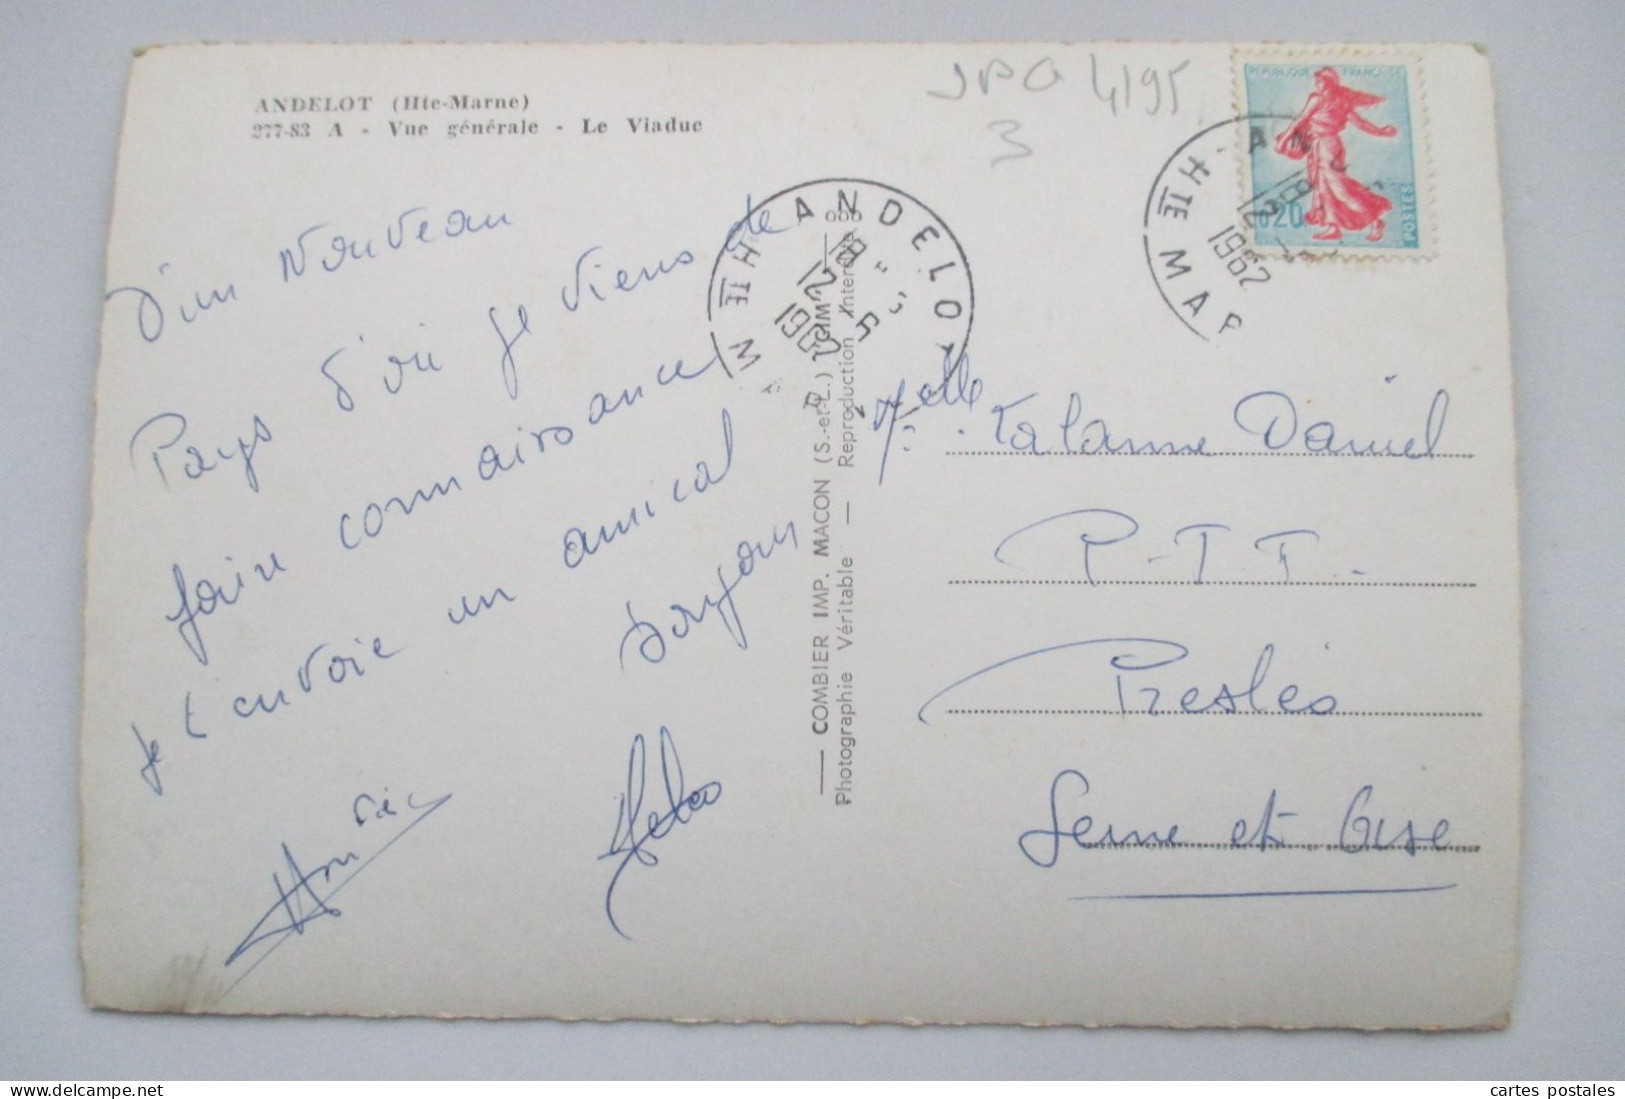 ANDELOT (Hte-Marne)
277-83 A - Vue générale - Le Viaduc
JPG 4195
3
REPUBLIQUE FRANÇAISE
0,20
POSTES
ANDELOT
HTE MARNE
18H
12 - 5
1962
HTE MAR
1962
D'un nouveau
Pays d'où je viens de
faire connaissance
je t'envoie un amical
Bonjour
COMBIER IMP. MACON (S.-et-L.) "CIM"
Photographie Véritable — Reproduction Interdite
Melle Daniel
P.T.T.
Presles
Seine et Oise
cartes postales
https://www.delcampe.net